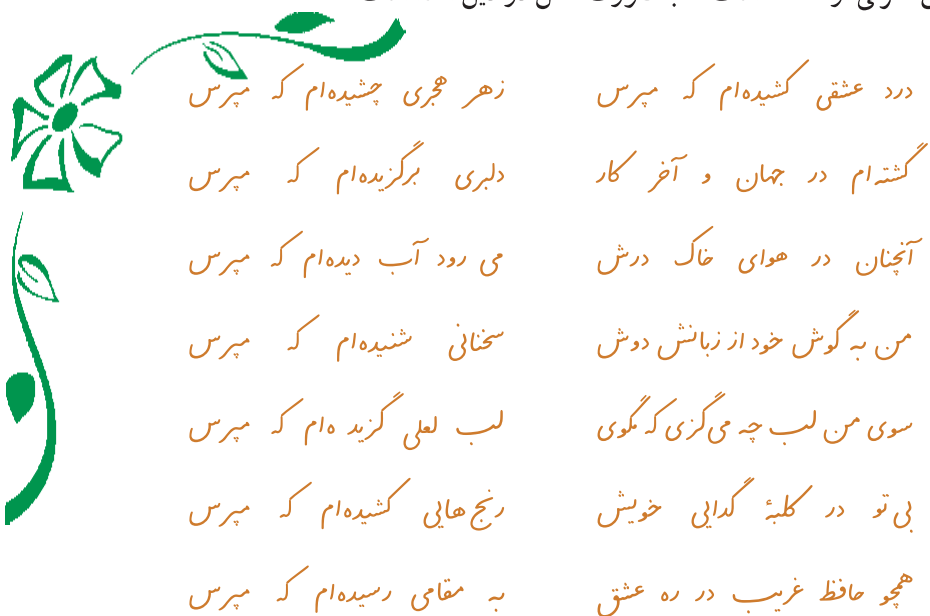 درد عشقی کشیده‌ام که مپرس زهر هجری چشیده‌ام که مپرس
گشته‌ام در جهان و آخر کار دلبری برگزیده‌ام که مپرس
آنچنان در هوای خاک درش می رود آب دیده‌ام که مپرس
من به گوش خود از زبانش دوش سخنانی شنیده‌ام که مپرس
سوی من لب چه می‌گزی که مگوی لب لعلی گزید ه‌ام که مپرس
بی‌تو در کلبهٔ گدایی خویش رنج‌هایی کشیده‌ام که مپرس
همچو حافظ غریب در ره عشق به مقامی رسیده‌ام که مپرس